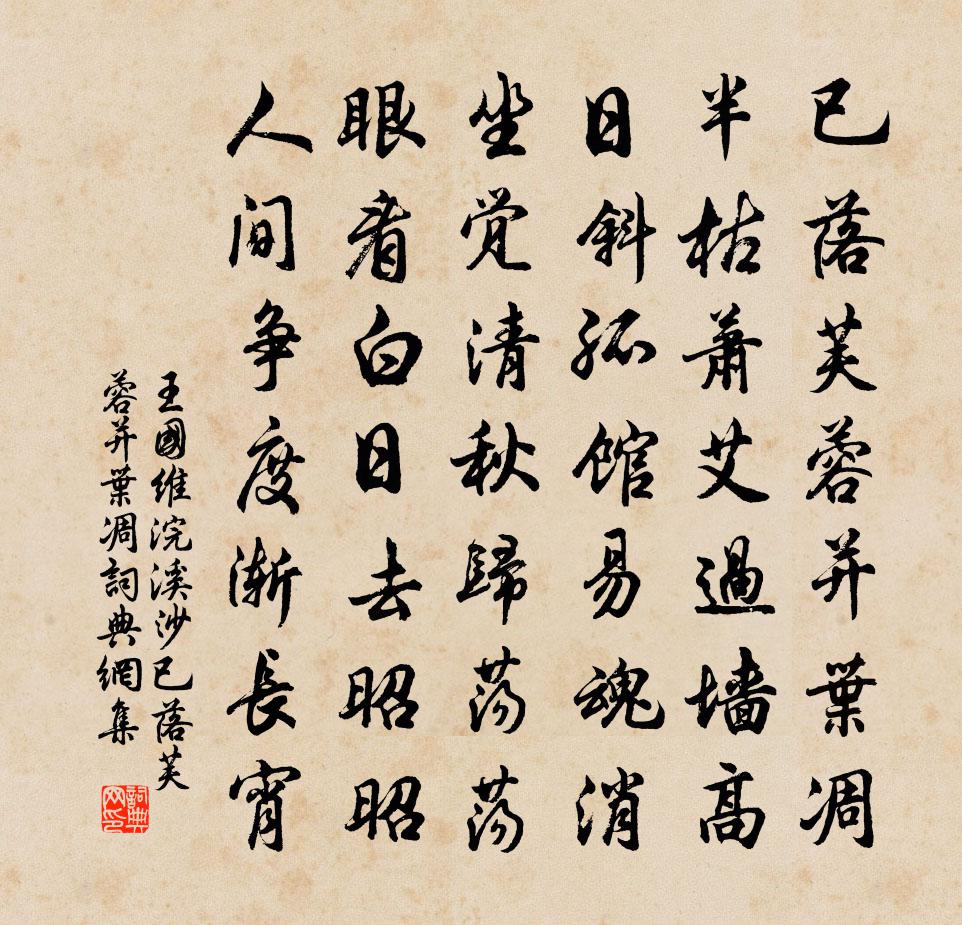 已落芙蓉并葉凋
半枯蕭艾過墻高
日斜孤館易魂消
坐覺清秋歸蕩蕩
眼看白日去昭昭
人間争度漸長宵
王國維浣溪沙已落芙
蓉并葉凋詞典網集
詞典
网印